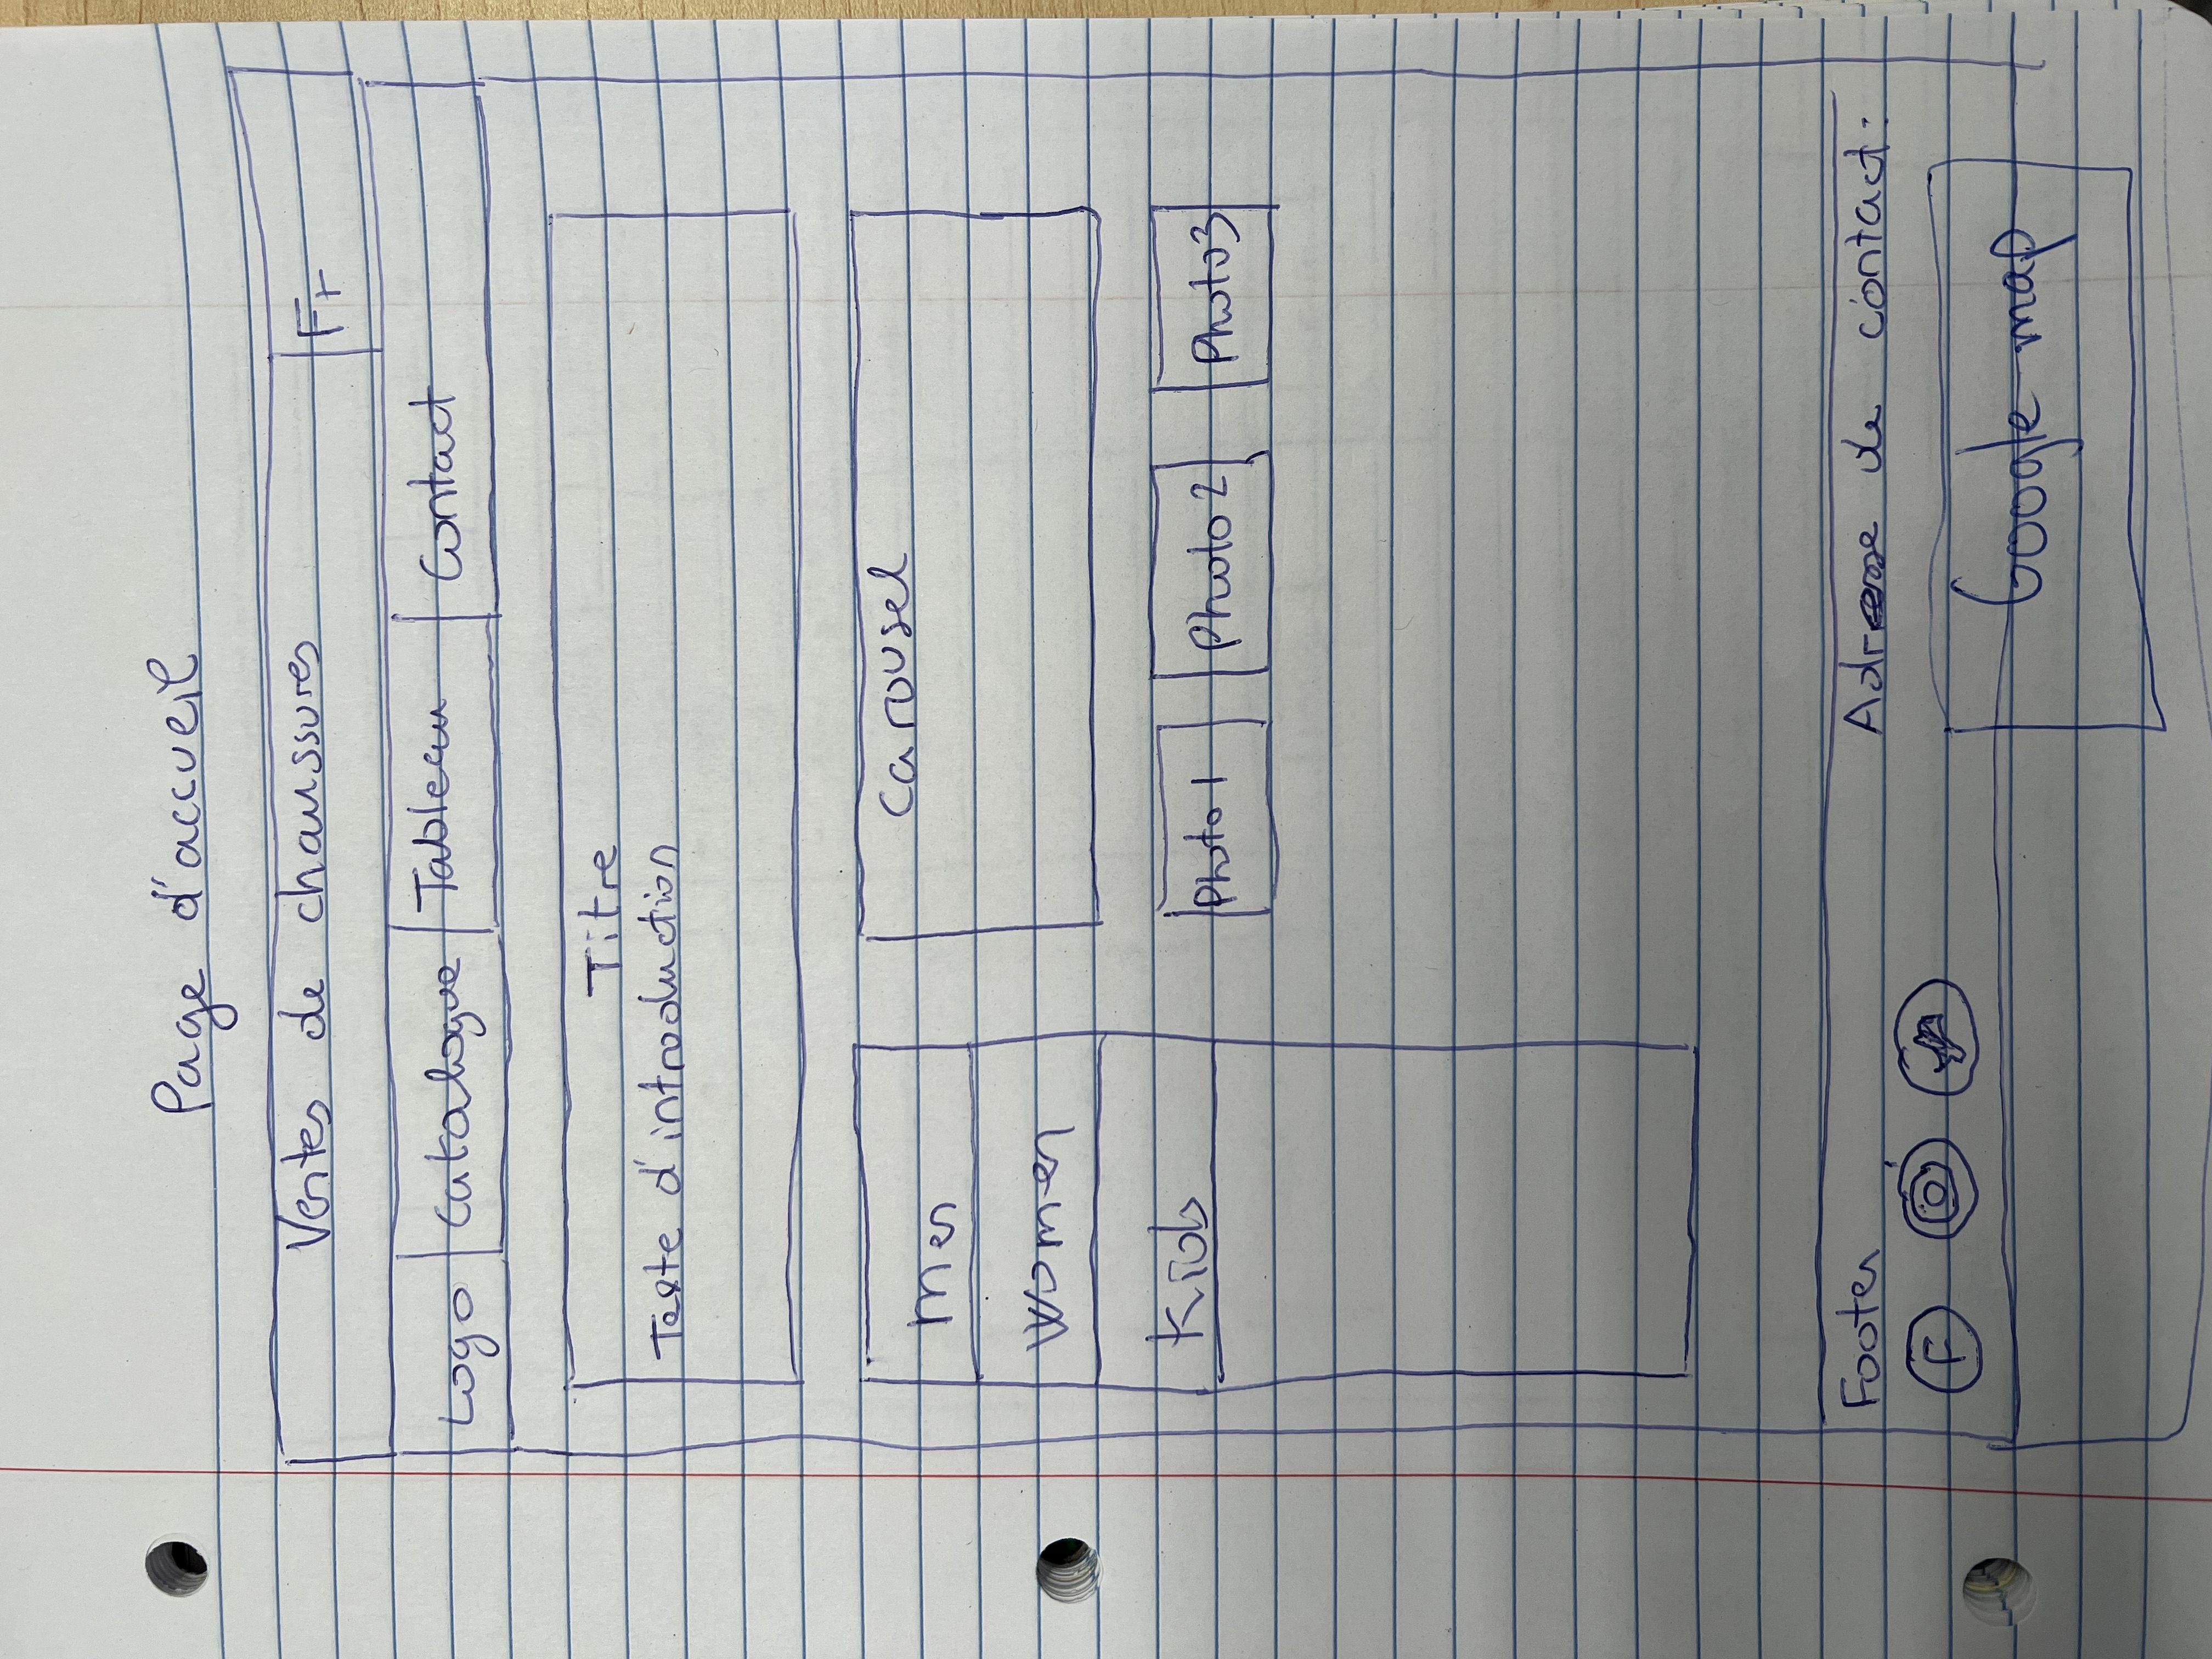 Page d'accueil
Ventes de chaussures Fr
Logo Catalogue Tableau Contact
Titre
Texte d'introduction
Men
Carousel
Women
Kids
Photo 1 Photo 2 Photo 3
Footer Adresse de contact:
F
Google map